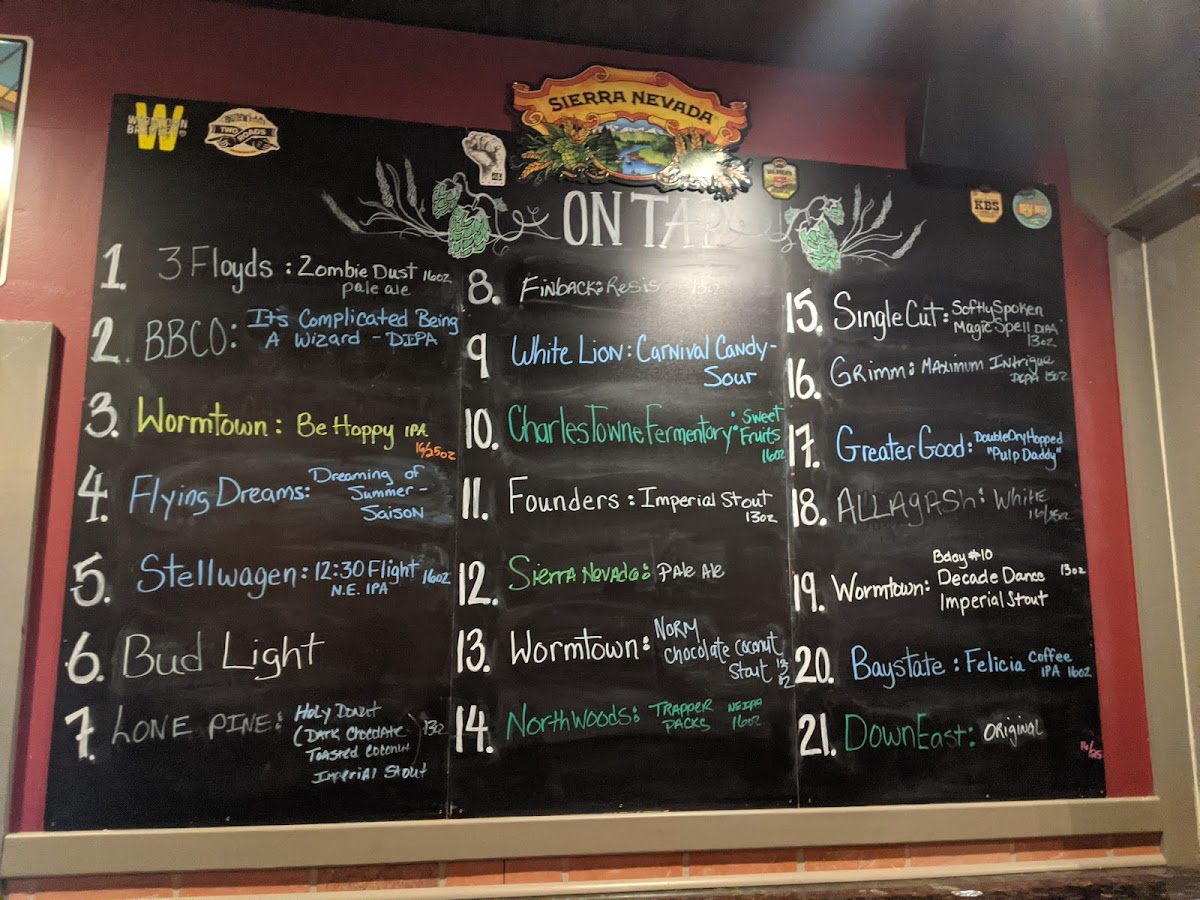 W
WORMTOWN
BREWERY
TWO ROADS
SIERRA NEVADA
KBS
ON TAP
1. 3 Floyds : Zombie Dust 16oz
pale ale
2. BBCO: It's Complicated Being
A Wizard - DIPA
3. Wormtown : Be Hoppy IPA
16/25oz
4. Flying Dreams: Dreaming of
Summer -
Saison
5. Stellwagen: 12:30 Flight 16oz
N.E. IPA
6. Bud Light
7. LONE PINE: Holy Donut
(Dark Chocolate
Toasted Coconut
Imperial Stout) 13oz
8. Finback: Resis 13oz
9 White Lion: Carnival Candy-
Sour
10. CharlesTowne Fermentory: Sweet
Fruits
16oz
11. Founders : Imperial Stout
13oz
12. Sierra Nevada: Pale Ale
13. Wormtown: Norm
chocolate coconut
Stout 13
oz
14. NorthWoods: Trapper NEIPA
Packs 16oz
15. SingleCut: Softly Spoken
Magic Spell DIPA
13oz
16. Grimm: Maximum Intrigue
13oz
17. Greater Good: Double Dry Hopped
"Pulp Daddy"
18. ALLAGASH: White
16/25oz
19. Wormtown: Bday #10
Decade Dance 13oz
Imperial Stout
20. Baystate : Felicia Coffee
IPA 16oz
21. DownEast: Original
16/25